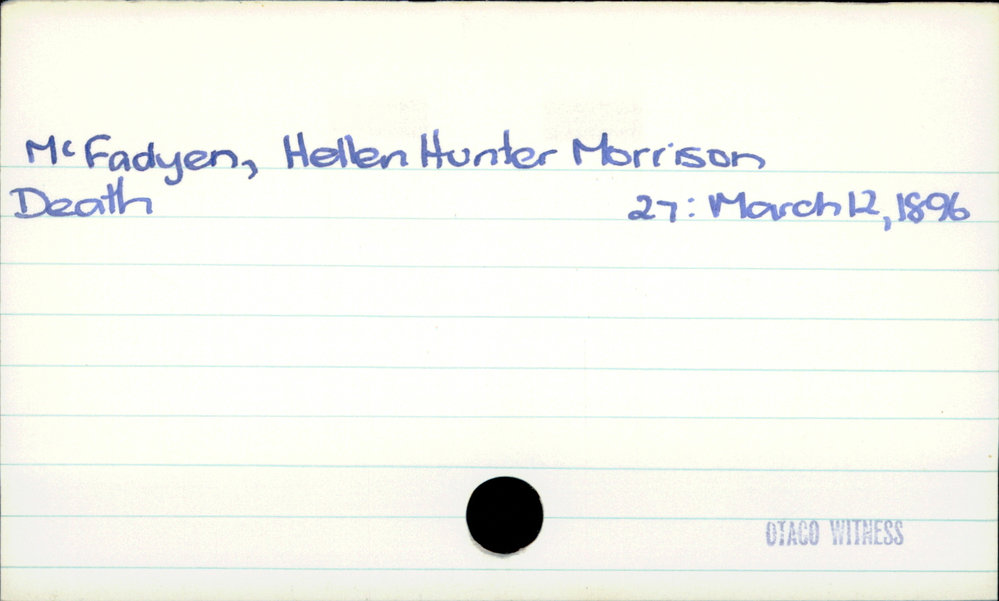 McFadyen, Hellen Hunter Morrison
Death 27: March 12, 1896
OTAGO WITNESS